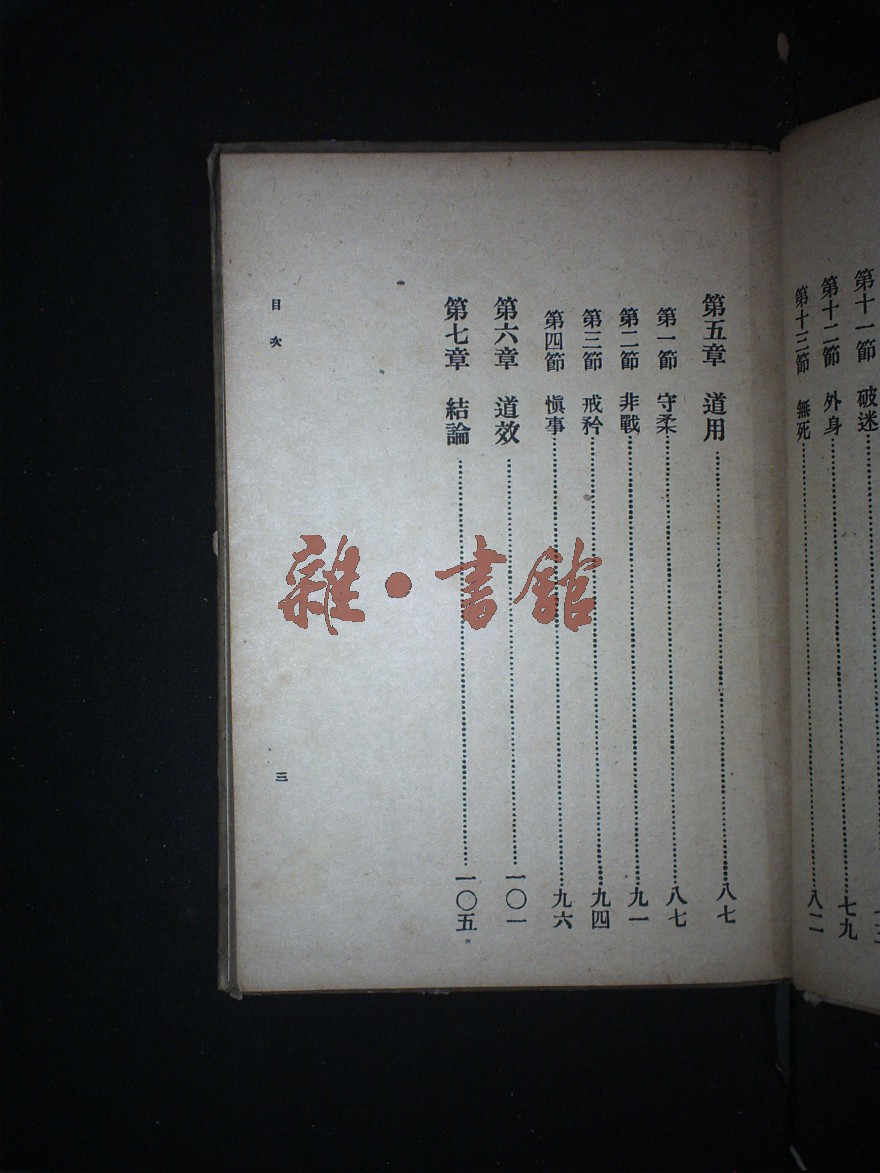 第十一節　破迷
第十二節　外身……七九
第十三節　無死……八二
第五章　道用……八七
第一節　守柔……八七
第二節　非戰……九一
第三節　戒矜……九四
第四節　慎事……九六
第六章　道效……一〇一
第七章　結論……一〇五
目次
三
雜・書館